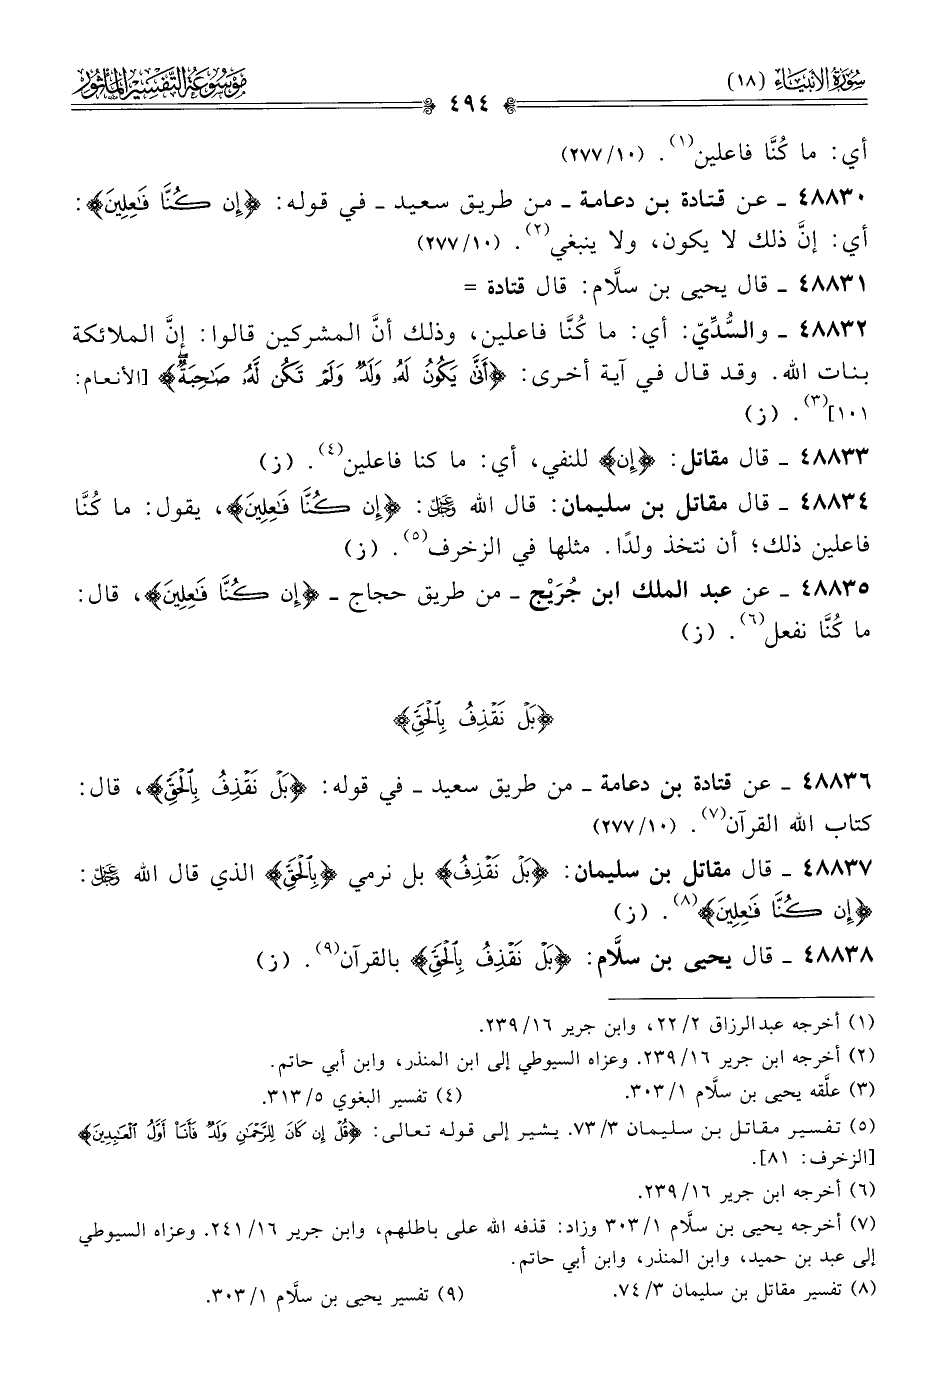 سُورَةُ الأَنبيَاءِ (١٨)
٤٩٤
مَوْسُوعَةُ التَّفْسِيرِ المَأْثُورِ
أي: ما كُنَّا فاعلين(١). (٢٧٧/١٠)
٤٨٨٣٠ ـ عن قتادة بن دعامة ـ من طريق سعيد ـ في قوله: ﴿إِن كُنَّا فَٰعِلِينَ﴾:
أي: إنَّ ذلك لا يكون، ولا ينبغي(٢). (٢٧٧/١٠)
٤٨٨٣١ ـ قال يحيى بن سلَّام: قال قتادة =
٤٨٨٣٢ ـ والسُّدِّيّ: أي: ما كُنَّا فاعلين، وذلك أنَّ المشركين قالوا: إنَّ الملائكة
بنات الله. وقد قال في آية أخرى: ﴿أَنَّىٰ يَكُونُ لَهُۥ وَلَدٌ وَلَمْ تَكُن لَّهُۥ صَٰحِبَةٌۖ﴾ [الأنعام:
١٠١](٣). (ز)
٤٨٨٣٣ ـ قال مقاتل: ﴿إِن﴾ للنفي، أي: ما كنا فاعلين(٤). (ز)
٤٨٨٣٤ ـ قال مقاتل بن سليمان: قال الله ﷿: ﴿إِن كُنَّا فَٰعِلِينَ﴾، يقول: ما كُنَّا
فاعلين ذلك؛ أن نتخذ ولدًا. مثلها في الزخرف(٥). (ز)
٤٨٨٣٥ ـ عن عبد الملك ابن جُرَيْج ـ من طريق حجاج ـ ﴿إِن كُنَّا فَٰعِلِينَ﴾، قال:
ما كُنَّا نفعل(٦). (ز)
﴿بَلْ نَقْذِفُ بِٱلْحَقِّ﴾
٤٨٨٣٦ ـ عن قتادة بن دعامة ـ من طريق سعيد ـ في قوله: ﴿بَلْ نَقْذِفُ بِٱلْحَقِّ﴾، قال:
كتاب الله القرآن(٧). (٢٧٧/١٠)
٤٨٨٣٧ ـ قال مقاتل بن سليمان: ﴿بَلْ نَقْذِفُ﴾ بل نرمي ﴿بِٱلْحَقِّ﴾ الذي قال الله ﷿:
﴿إِن كُنَّا فَٰعِلِينَ﴾(٨). (ز)
٤٨٨٣٨ ـ قال يحيى بن سلَّام: ﴿بَلْ نَقْذِفُ بِٱلْحَقِّ﴾ بالقرآن(٩). (ز)
(١) أخرجه عبدالرزاق ٢٢/٢، وابن جرير ٢٣٩/١٦.
(٢) أخرجه ابن جرير ٢٣٩/١٦. وعزاه السيوطي إلى ابن المنذر، وابن أبي حاتم.
(٣) علَّقه يحيى بن سلَّام ٣٠٣/١. (٤) تفسير البغوي ٣١٣/٥.
(٥) تفسير مقاتل بن سليمان ٧٣/٣. يشير إلى قوله تعالى: ﴿قُلْ إِن كَانَ لِلرَّحْمَٰنِ وَلَدٌ فَأَنَا۠ أَوَّلُ ٱلْعَٰبِدِينَ﴾
[الزخرف: ٨١].
(٦) أخرجه ابن جرير ٢٣٩/١٦.
(٧) أخرجه يحيى بن سلَّام ٣٠٣/١ وزاد: قذفه الله على باطلهم، وابن جرير ٢٤١/١٦. وعزاه السيوطي
إلى عبد بن حميد، وابن المنذر، وابن أبي حاتم.
(٨) تفسير مقاتل بن سليمان ٧٤/٣. (٩) تفسير يحيى بن سلَّام ٣٠٣/١.